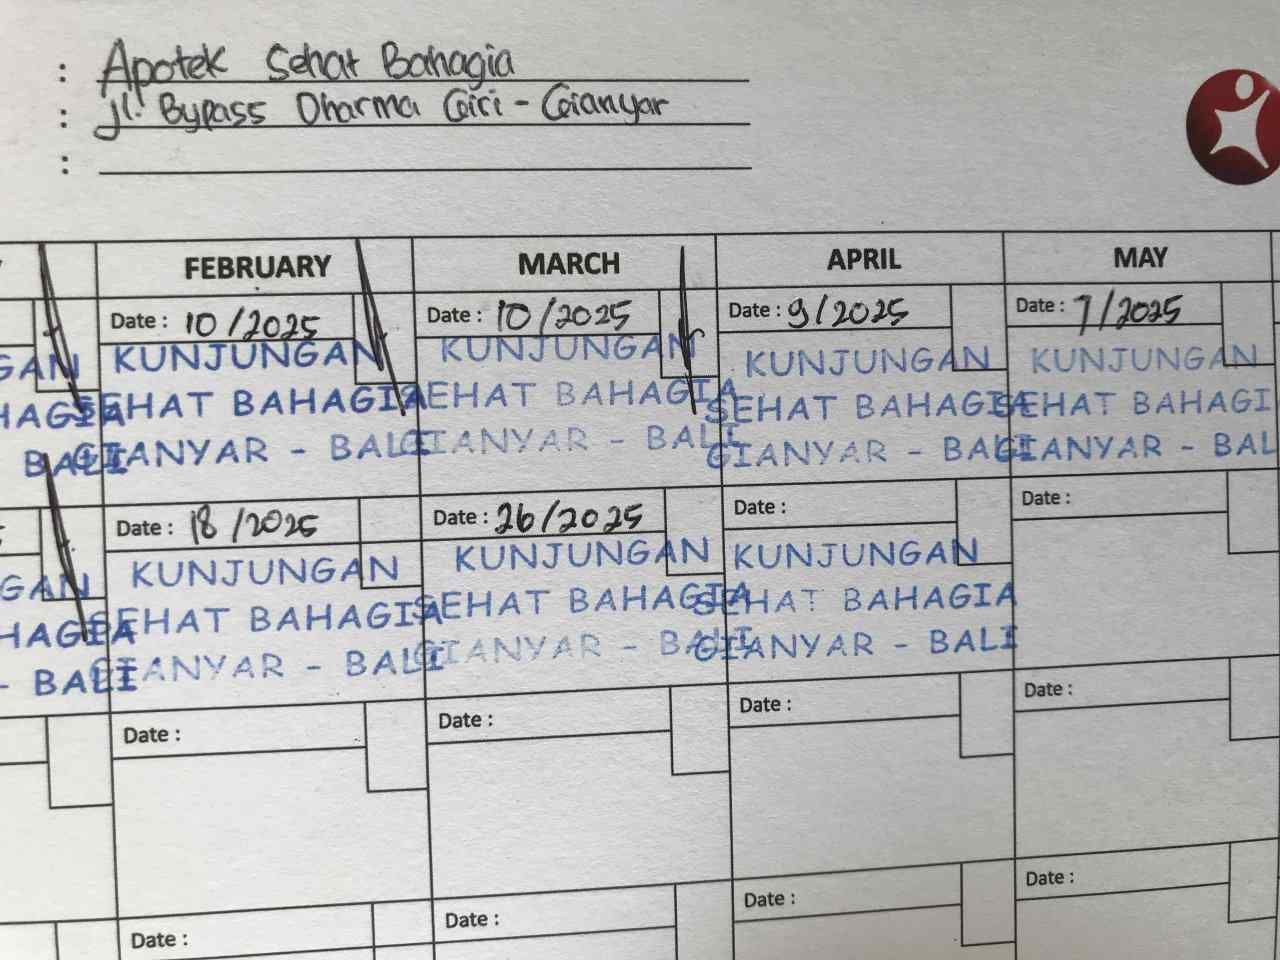 : Apotek Sehat Bahagia
: Jl. Bypass Dharma Giri - Gianyar
:
FEBRUARY MARCH APRIL MAY
Date : 10/2025 Date : 10/2025 Date : 9/2025 Date : 7/2025
GAN KUNJUNGAN KUNJUNGAN KUNJUNGAN KUNJUNGAN
HAGIA SEHAT BAHAGIA SEHAT BAHAGIA SEHAT BAHAGIA SEHAT BAHAGI
BALI GIANYAR - BALI GIANYAR - BALI GIANYAR - BALI GIANYAR - BAL
Date : 18/2025 Date : 26/2025 Date : Date :
GAN KUNJUNGAN KUNJUNGAN KUNJUNGAN
HAGIA SEHAT BAHAGIA SEHAT BAHAGIA SEHAT BAHAGIA
- BALI GIANYAR - BALI GIANYAR - BALI GIANYAR - BALI
Date : Date : Date : Date :
Date : Date : Date : Date :